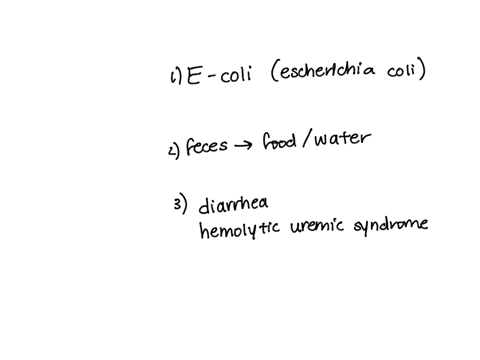 1) E-coli (escherichia coli)
2) feces → food/water
3) diarrhea
hemolytic uremic syndrome